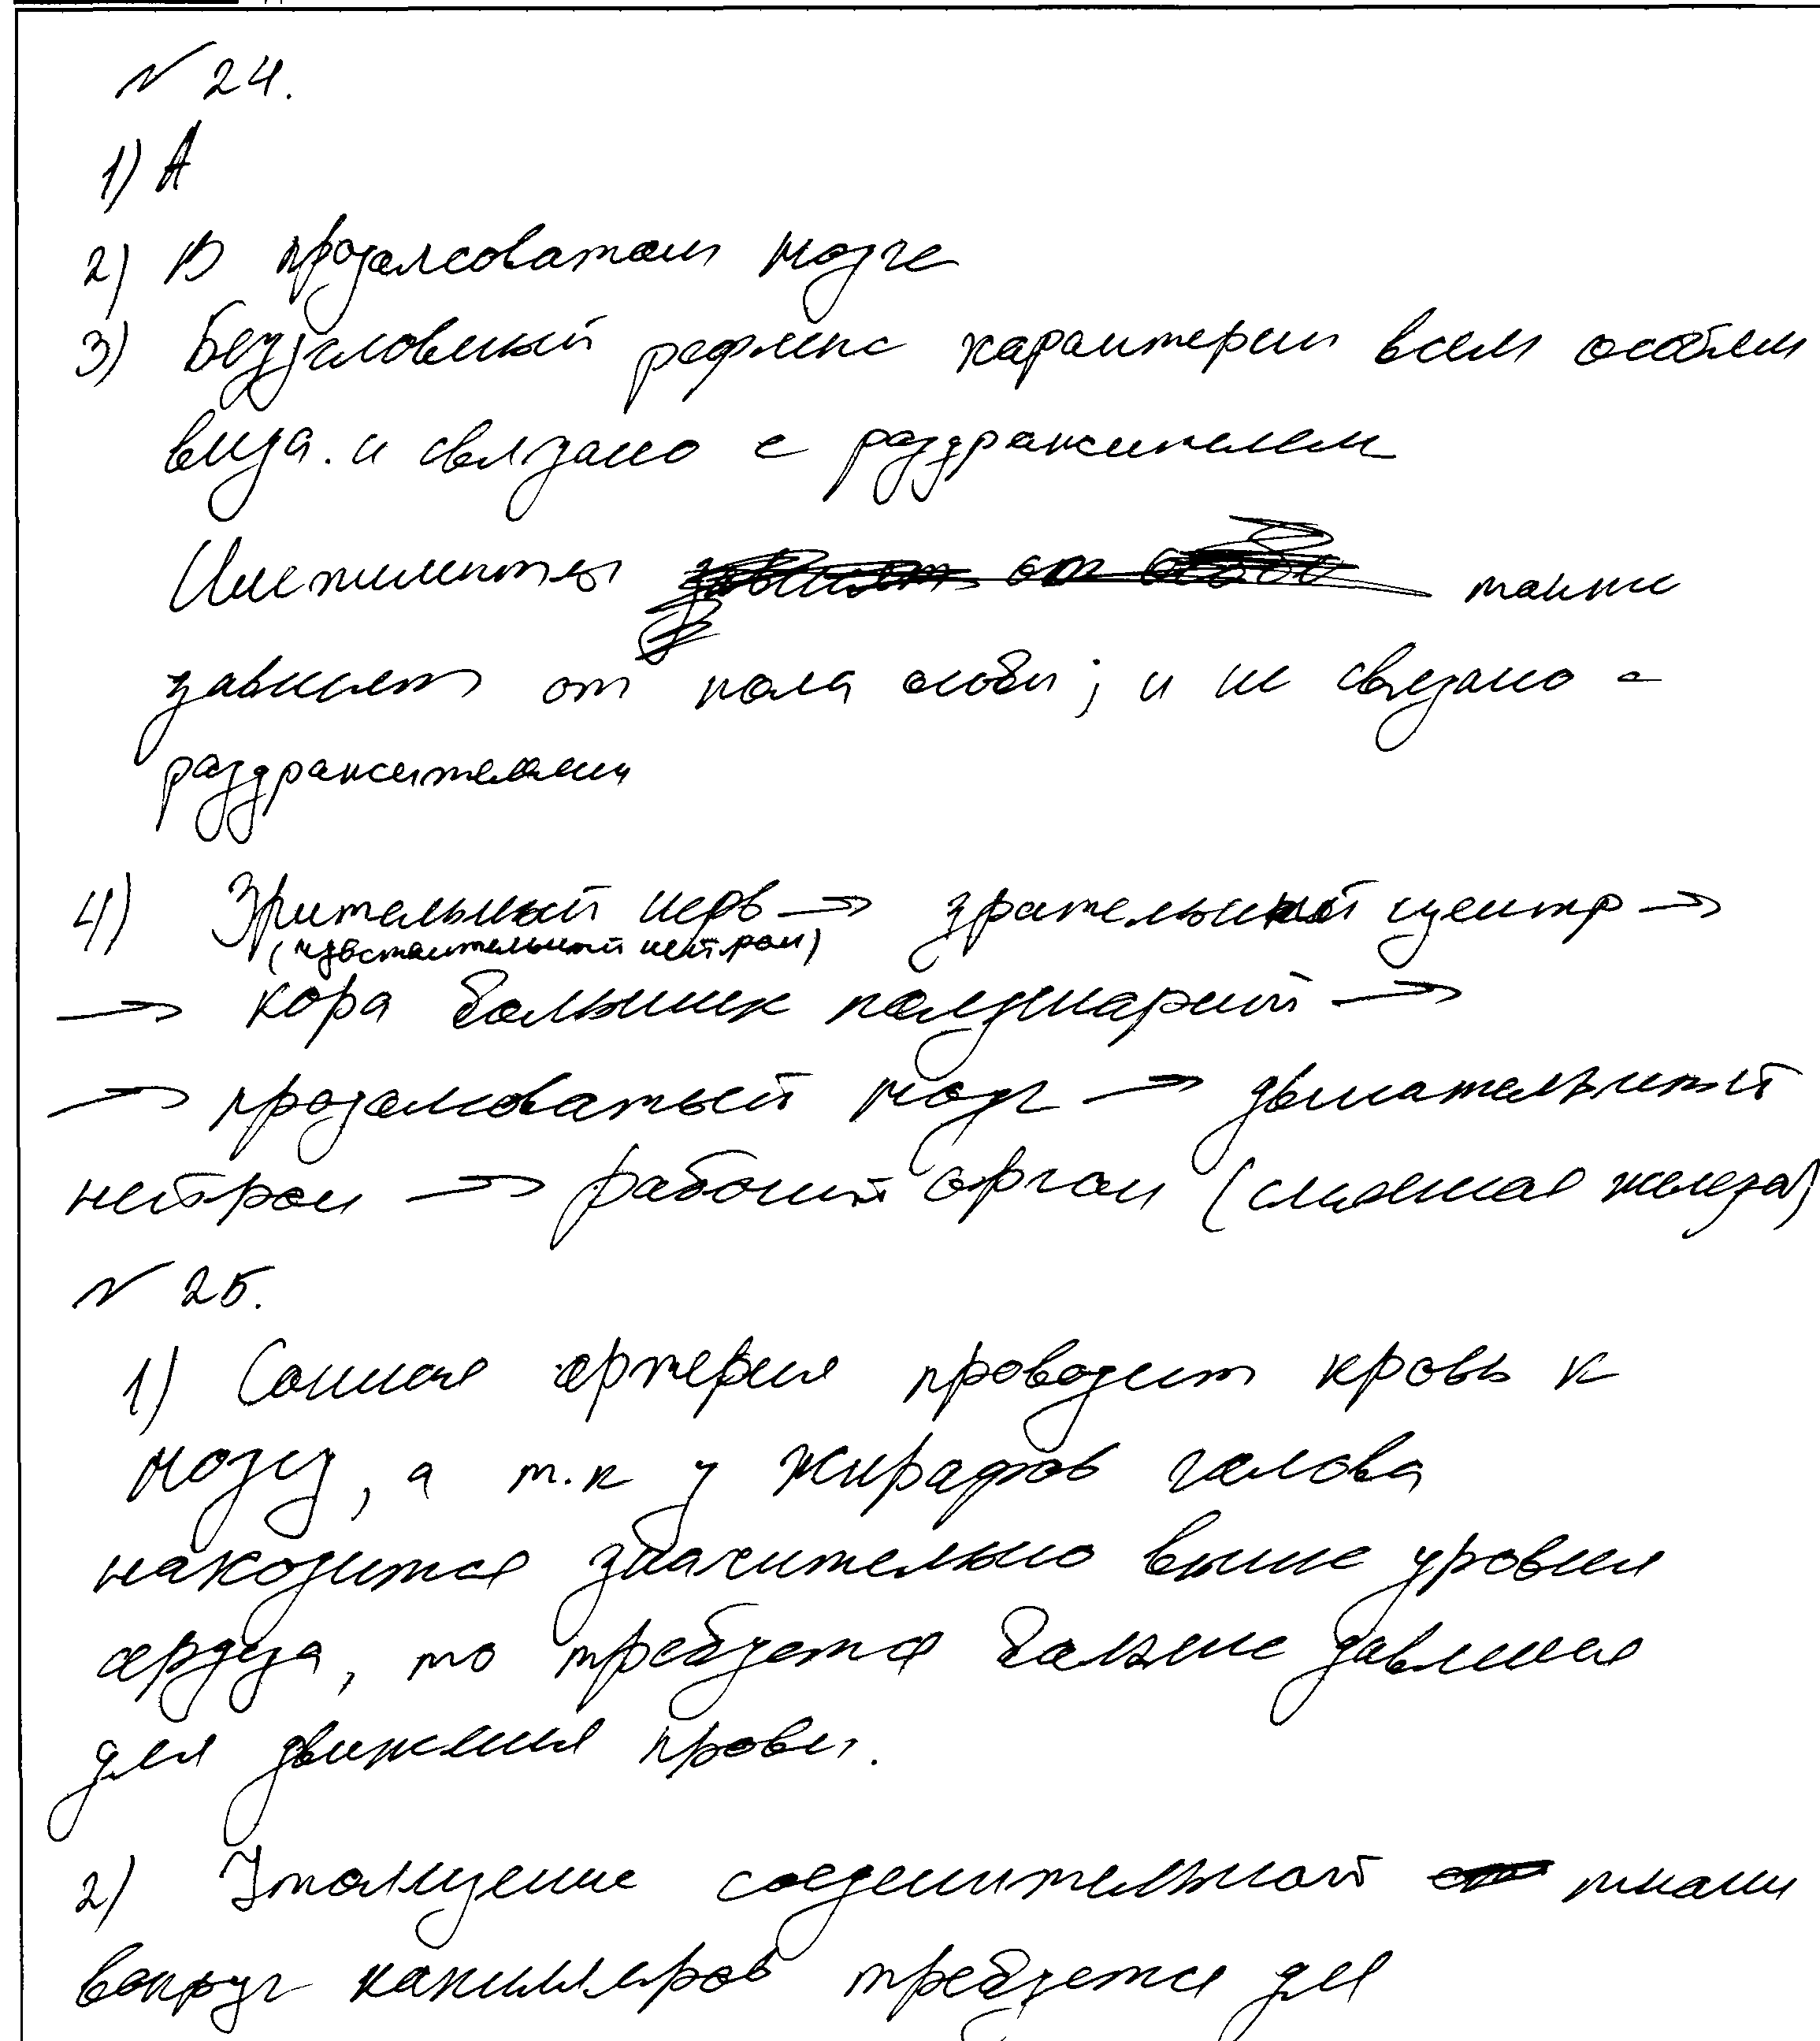 № 24.
1) А
2) В продолговатом мозге
3) Безусловный рефлекс характерен всем особям
вида. и связано с раздражителем
Инстинкты также
зависят от пола особи; и не связано с
раздражителями
4) Зрительный нерв → зрительный центр →
(чувствительный нейрон)
→ кора больших полушарий →
→ продолговатый мозг → двигательный
нейрон → рабочий орган (слюнная железа)
№ 25.
1) Сонная артерия проводит кровь к
мозгу, а т.к у жирафов голова
находится значительно выше уровня
сердца, то требуется больше давления
для движения крови.
2) Утолщение соединительной ткани
вокруг капилляров требуется для